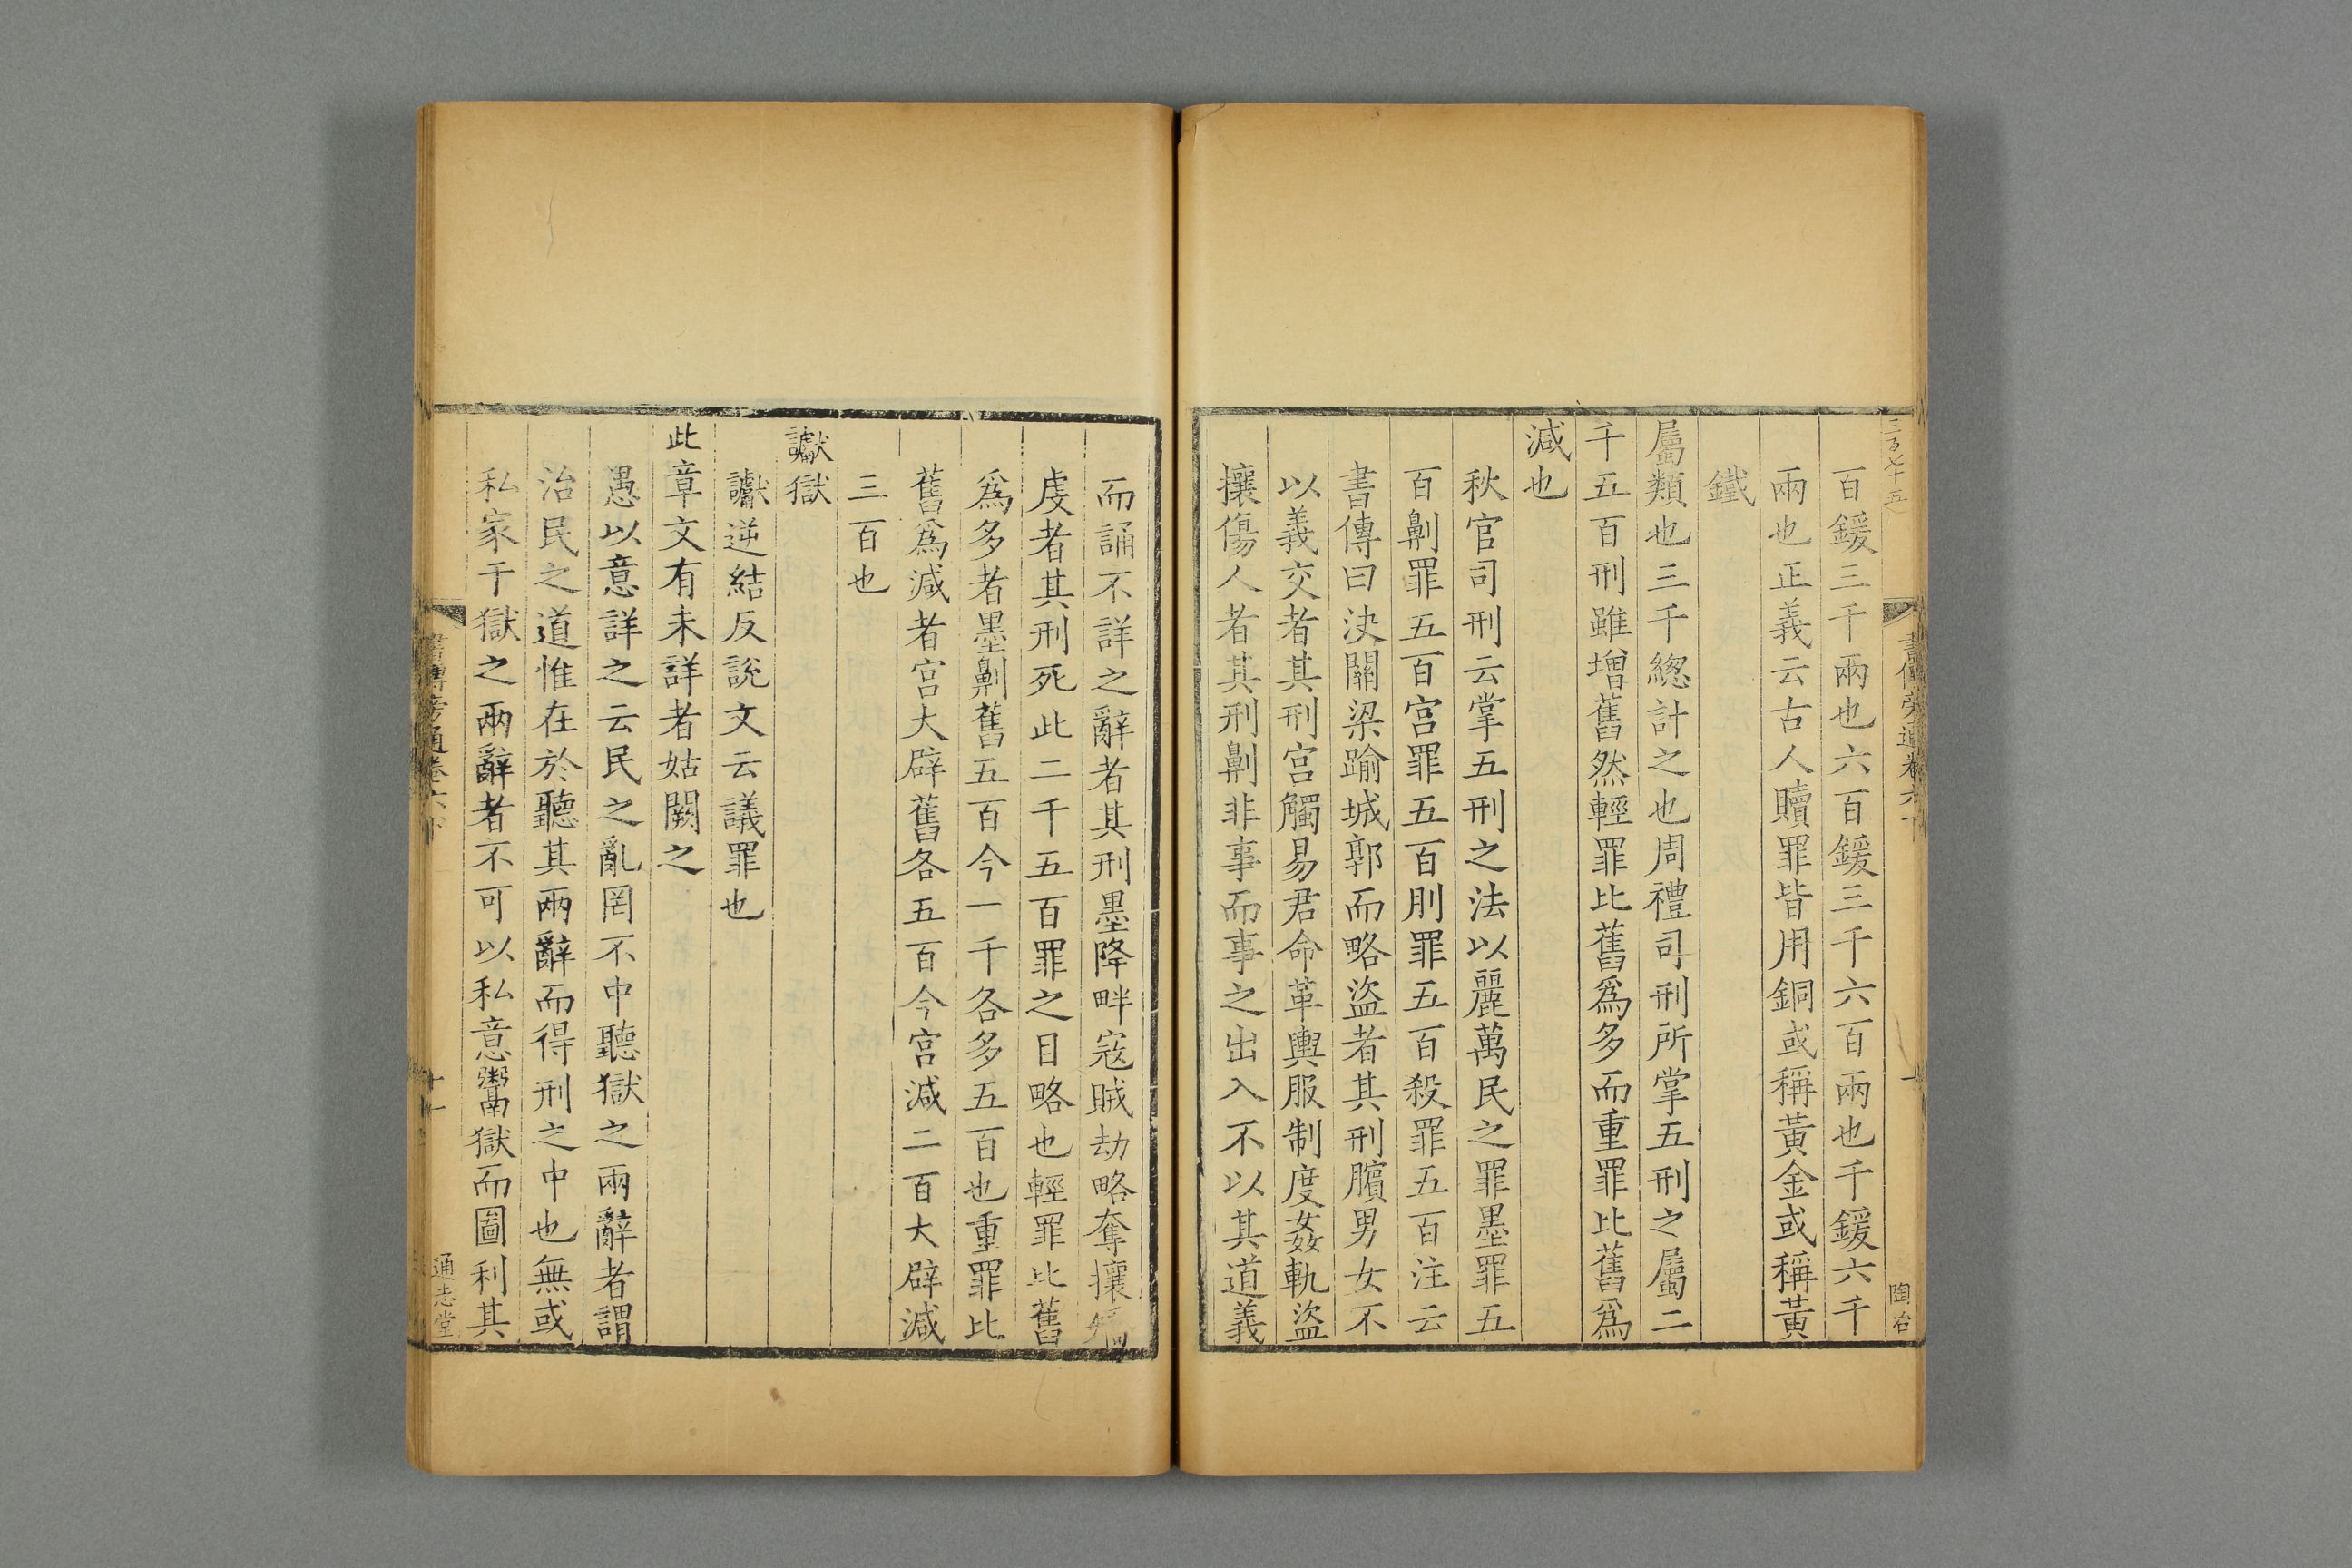 三百七十五
書傳旁通卷六下
陶冶
百鍰三千兩也六百鍰三千六百兩也千鍰六千
兩也正義云古人贖罪皆用銅或稱黃金或稱黃
鐵
屬類也三千緫計之也周禮司刑所掌五刑之屬二
千五百刑雖增舊然輕罪比舊爲多而重罪比舊爲
減也
秋官司刑云掌五刑之法以麗萬民之罪墨罪五
百劓罪五百宫罪五百刖罪五百殺罪五百注云
書傳曰決關梁踰城郭而略盜者其刑臏男女不
以義交者其刑宫觸易君命革輿服制度姦軌盜
攘傷人者其刑劓非事而事之出入不以其道義
而誦不詳之辭者其刑墨降畔寇賊劫略奪攘矯
虔者其刑死此二千五百罪之目略也輕罪比舊
爲多者墨劓舊五百今一千各多五百也重罪比
舊爲減者宫大辟舊各五百今宫減二百大辟減
三百也
讞獄
讞逆結反說文云議罪也
此章文有未詳者姑闕之
愚以意詳之云民之亂罔不中聽獄之兩辭者謂
治民之道惟在於聽其兩辭而得刑之中也無或
私家于獄之兩辭者不可以私意鬻獄而圖利其
書傳旁通卷六下
十一
通志堂